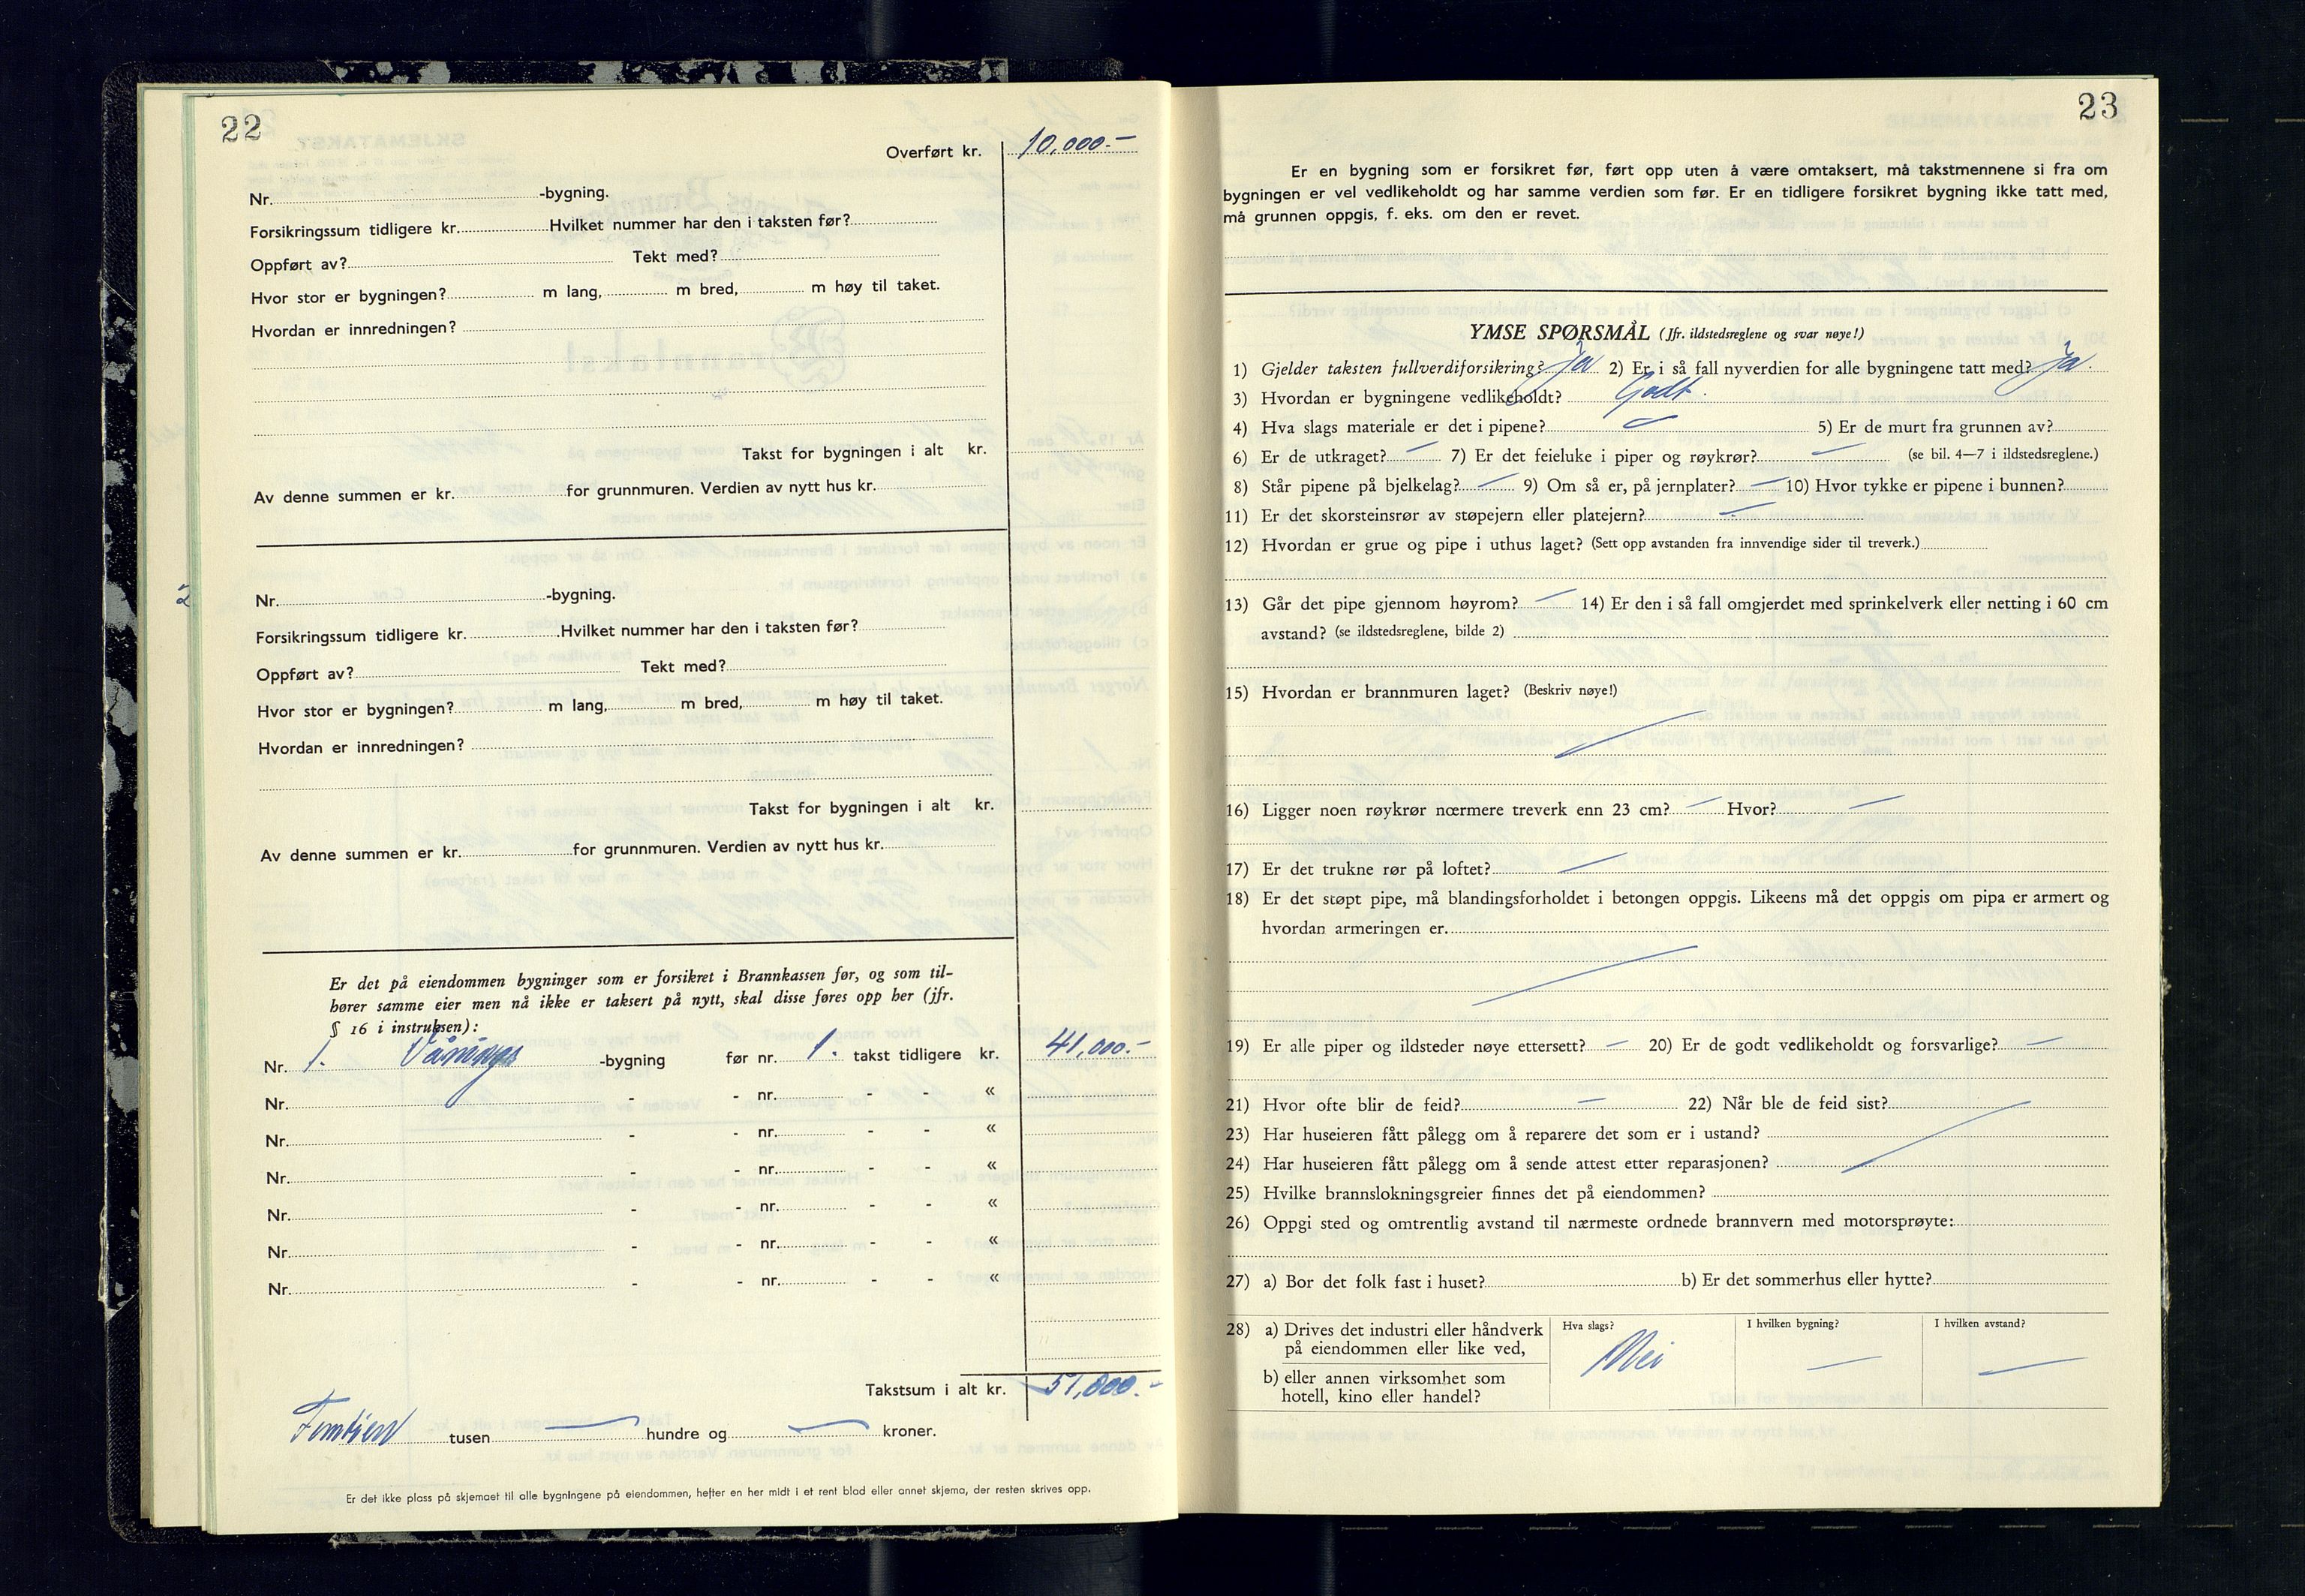 22
Overført kr. 10,000.-
Nr. -bygning.
Forsikringssum tidligere kr. Hvilket nummer har den i taksten før?
Oppført av? Tekt med?
Hvor stor er bygningen? m lang, m bred, m høy til taket.
Hvordan er innredningen?
Takst for bygningen i alt kr.
Av denne summen er kr. for grunnmuren. Verdien av nytt hus kr.
2
Nr. -bygning.
Forsikringssum tidligere kr. Hvilket nummer har den i taksten før?
Oppført av? Tekt med?
Hvor stor er bygningen? m lang, m bred, m høy til taket.
Hvordan er innredningen?
Takst for bygningen i alt kr.
Av denne summen er kr. for grunnmuren. Verdien av nytt hus kr.
Er det på eiendommen bygninger som er forsikret i Brannkassen før, og som til-
hører samme eier men nå ikke er taksert på nytt, skal disse føres opp her (jfr.
§ 16 i instruksen):
Nr. 1. Vånings -bygning før nr. 1. takst tidligere kr. 41,000.-
Nr. - - nr. - - «
Nr. - - nr. - - «
Nr. - - nr. - - «
Nr. - - nr. - - «
Nr. - - nr. - - «
Nr. - - nr. - - «
Takstsum i alt kr. 51,000.-
Femtien tusen — hundre og — kroner.
Er det ikke plass på skjemaet til alle bygningene på eiendommen, hefter en her midt i et rent blad eller annet skjema, der resten skrives opp.
23
Er en bygning som er forsikret før, ført opp uten å være omtaksert, må takstmennene si fra om
bygningen er vel vedlikeholdt og har samme verdien som før. Er en tidligere forsikret bygning ikke tatt med,
må grunnen oppgis, f. eks. om den er revet.
YMSE SPØRSMÅL (Jfr. ildstedsreglene og svar nøye!)
1) Gjelder taksten fullverdiforsikring? Ja 2) Er i så fall nyverdien for alle bygningene tatt med? Ja.
3) Hvordan er bygningene vedlikeholdt? Godt.
4) Hva slags materiale er det i pipene? — 5) Er de murt fra grunnen av?
6) Er de utkraget? — 7) Er det feieluke i piper og røykrør? — (se bil. 4—7 i ildstedsreglene.)
8) Står pipene på bjelkelag? — 9) Om så er, på jernplater? — 10) Hvor tykke er pipene i bunnen?
11) Er det skorsteinsrør av støpejern eller platejern? —
12) Hvordan er grue og pipe i uthus laget? (Sett opp avstanden fra innvendige sider til treverk.)
13) Går det pipe gjennom høyrom? — 14) Er den i så fall omgjerdet med sprinkelverk eller netting i 60 cm
avstand? (se ildstedsreglene, bilde 2)
15) Hvordan er brannmuren laget? (Beskriv nøye!)
—
16) Ligger noen røykrør nærmere treverk enn 23 cm? — Hvor? —
17) Er det trukne rør på loftet? —
18) Er det støpt pipe, må blandingsforholdet i betongen oppgis. Likeens må det oppgis om pipa er armert og
hvordan armeringen er.
—
19) Er alle piper og ildsteder nøye ettersett? — 20) Er de godt vedlikeholdt og forsvarlige? —
21) Hvor ofte blir de feid? — 22) Når ble de feid sist?
23) Har huseieren fått pålegg om å reparere det som er i ustand? —
24) Har huseieren fått pålegg om å sende attest etter reparasjonen?
25) Hvilke brannslokningsgreier finnes det på eiendommen?
26) Oppgi sted og omtrentlig avstand til nærmeste ordnede brannvern med motorsprøyte:
27) a) Bor det folk fast i huset? b) Er det sommerhus eller hytte?
28) a) Drives det industri eller håndverk
på eiendommen eller like ved,
b) eller annen virksomhet som
hotell, kino eller handel?
Hva slags?
Nei
I hvilken bygning?
—
I hvilken avstand?
—